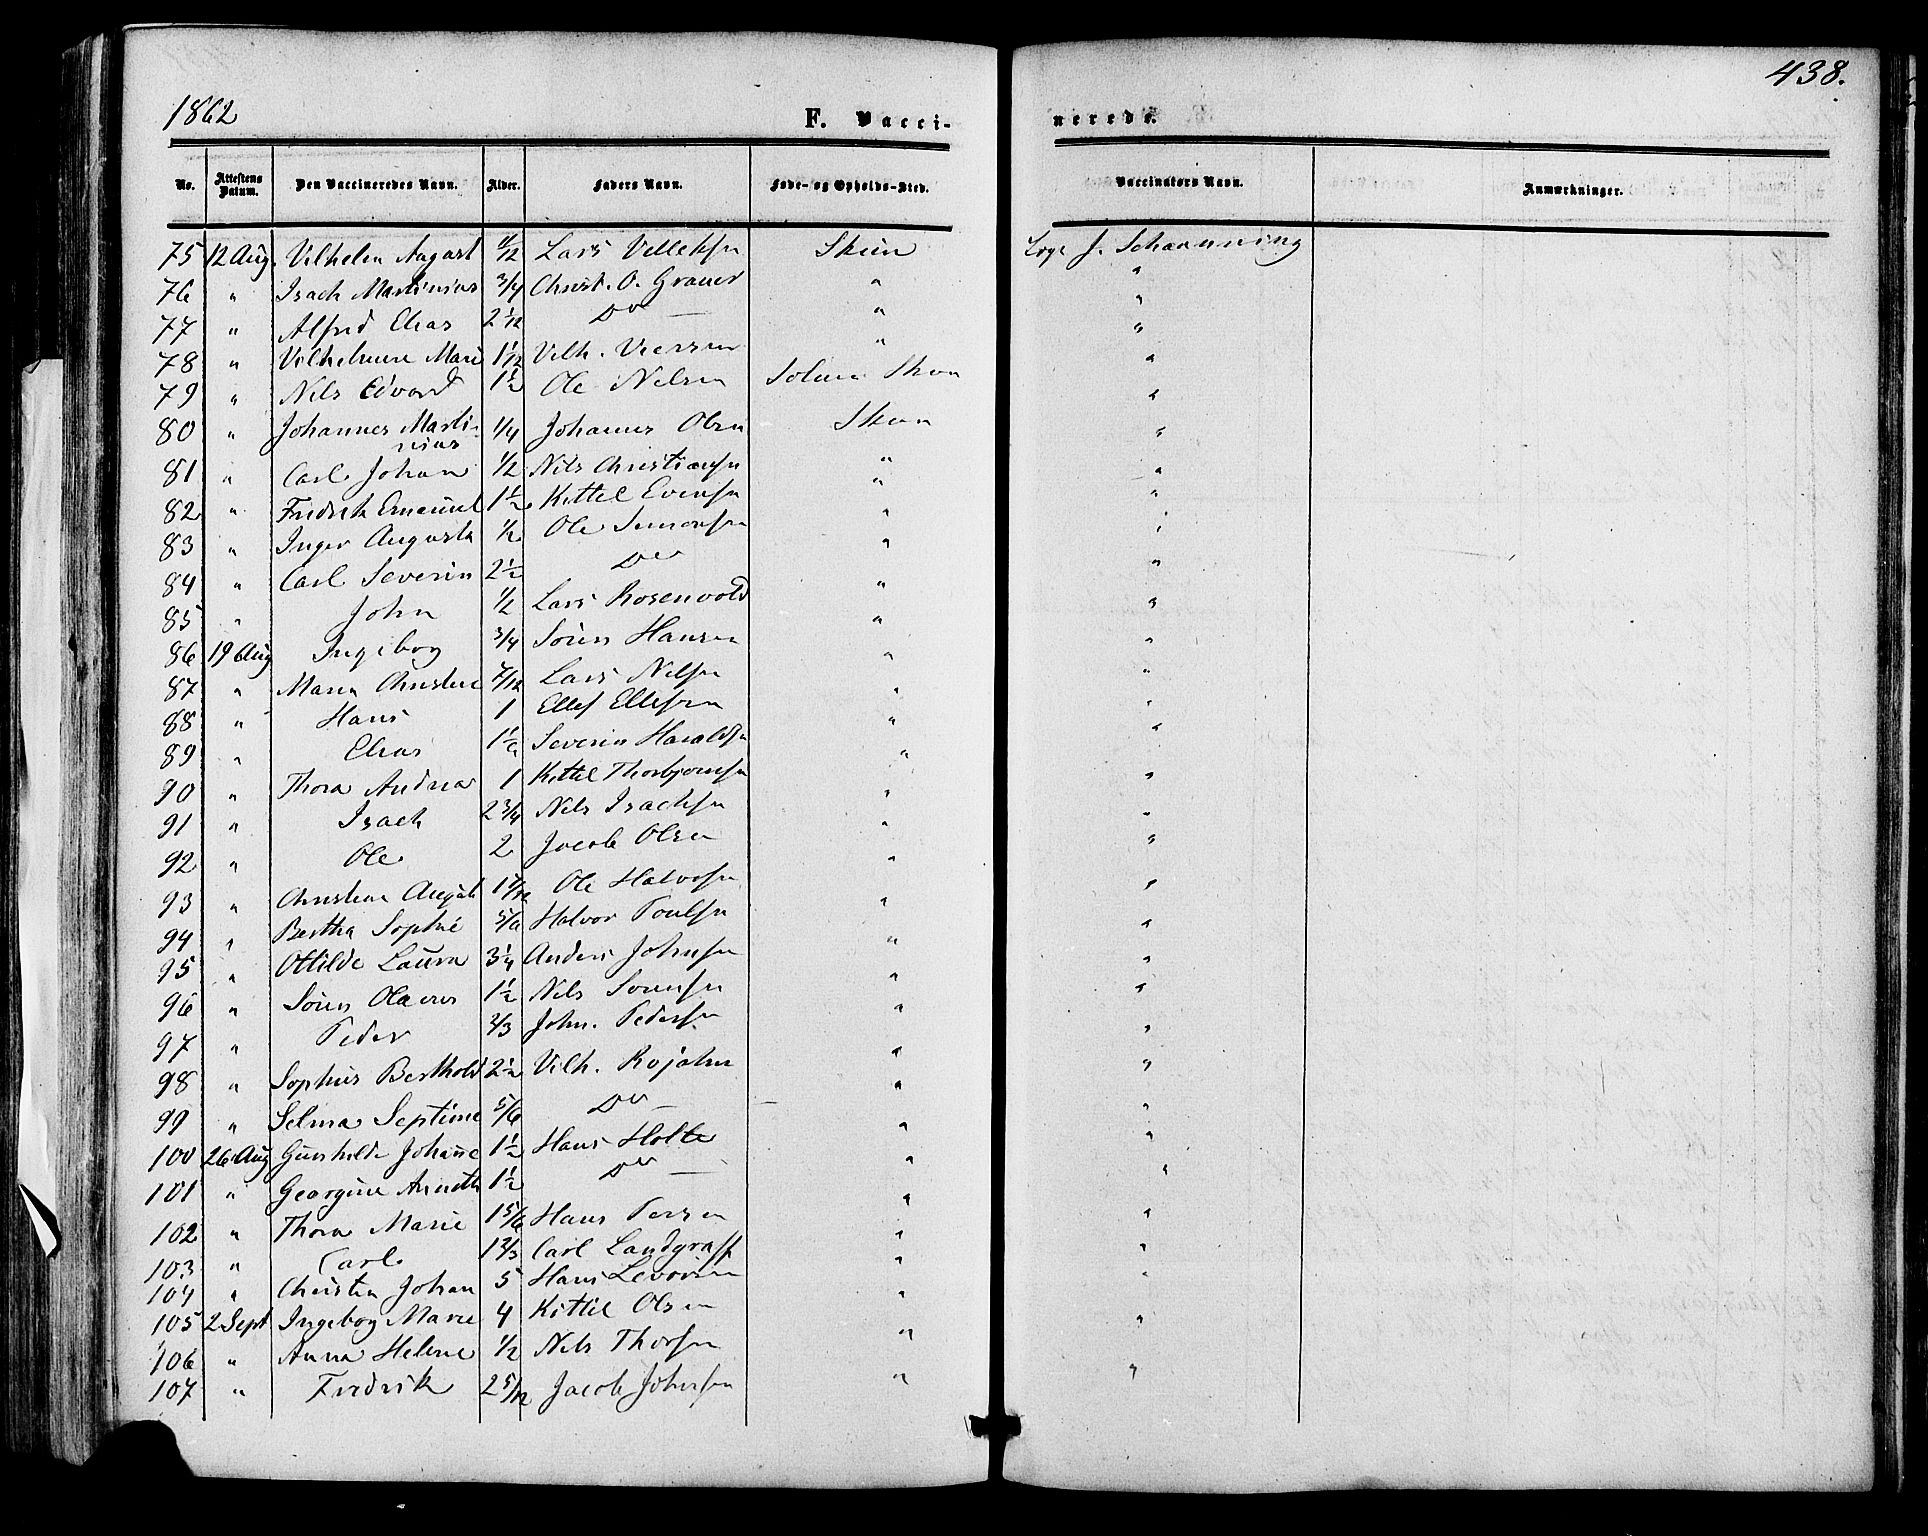 1862
438.
F. Vacci-
nerede.
No. Attestens Datum. Den Vaccineredes Navn. Alder. Faders Navn. Føde- og Opholds-Sted. Vaccinators Navn. Anmærkninger.
75 12 Aug. Vilhelm August Lars Skien J. Schanning
76 " Isach Martinius 3/4 Christ. O. " "
77 " Alfred Elias 2 1/12 Do — " "
78 " Vilhelmine Marie 1 1/12 Vilh. " "
79 " Nils Edvard 1 1/2 Ole Nilsen "
80 " Johannes Marti-
nius 1/4 Johannes Olsen "
81 " Carl Johan 1/2 Nils Christiansen " "
82 " Fredrik Emanuel 1 1/2 Kittil Evensen " "
83 " Inger Augusta 1/2 Ole Simonsen " "
84 " Carl Severin 2 1/2 Do " "
85 " John 1/2 Lars Rosenvold " "
86 19 Aug Ingebog 3/4 Sören Hansen " "
87 " Maren Christine 7/12 Lars Nilsen " "
88 " Hans 1 Ellef Ellefsen " "
89 " Elias Severin Haraldsen " "
90 " Thora Andrea 1 Kittil Thorbjornsen " "
91 " Isach 2 3/4 Nils Isachsen " "
92 " Ole 2 Jacob Olsen " "
93 " Christine Ole Halvorsen " "
94 " Bertha Sophie Halvor Poulsen " "
95 " Ottilde Laura 3 1/4 Anders Johnsen " "
96 " Sören Olaves 1 1/2 Nils Sörensen " "
97 " Peder 2/3 John. Pedersen " "
98 " Sophus Berthold 2 1/2 Vilh. Rojahn " "
99 " Selma Septime 5/6 Do — " "
100 26 Aug Gunhilde Johanne 1 1/2 Hans Holte " "
101 " Georgine Anneth 1 1/2 Do — " "
102 " Thora Marie 1 5/6 Hans " "
103 " Carl 1 2/3 Carl Landgraff " "
104 " Christen Johan 5 Hans " "
105 2 Sept Ingebog Marie 4 Kittil Olsen " "
106 " Anna Helene 1/2 Nils Thorsen "
107 " Fredrik 2 5/12 Jacob Johnsen " "